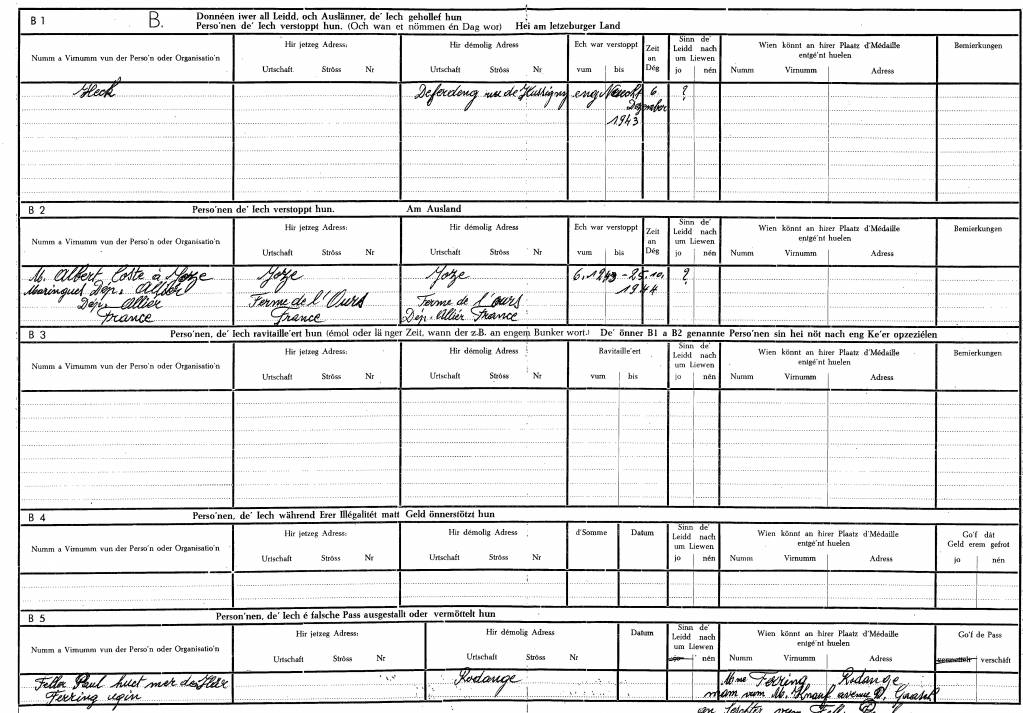 B 1 B. Donnéen iwer all Leidd, och Auslänner, de' Iech gehollef hun
Perso'nen de' Iech verstoppt hun. (Och wan et nömmen én Dag wor) Hei am letzeburger Land
Numm a Virnumm vun der Perso'n oder Organisatio'n
Hir jetzeg Adress:
Urtschaft Ströss Nr
Hir démolig Adress
Urtschaft Ströss Nr
Ech war verstoppt
vum bis
Zeit an Dég
Sinn de' Leidd nach um Liewen
jo nén
Wien könnt an hirer Plaatz d'Médaille entgé'nt huelen
Numm Virnumm Adress
Bemierkungen
Heck Deferdeng rue de Hussigny eng Nuecht 6 ?
Dezember
1943
B 2 Perso'nen de' Iech verstoppt hun. Am Ausland
Numm a Virnumm vun der Perso'n oder Organisatio'n
Hir jetzeg Adress:
Urtschaft Ströss Nr
Hir démolig Adress
Urtschaft Ströss Nr
Ech war verstoppt
vum bis
Zeit an Dég
Sinn de' Leidd nach um Liewen
jo nén
Wien könnt an hirer Plaatz d'Médaille entgé'nt huelen
Numm Virnumm Adress
Bemierkungen
M. Albert Coste à Joze Joze Joze 6.1243 - 25.10. ?
Maringues Dép. Allier 1944
Dép. Allier Ferme de l'Ours Ferme de l'ours
France France Dép. Allier France
B 3 Perso'nen, de' Iech ravitaille'ert hun (émol oder länger Zeit, wann der z.B. an engem Bunker wort.) De' önner B1 a B2 genannte Perso'nen sin hei nöt nach eng Ke'er opzezielen
Numm a Virnumm vun der Perso'n oder Organisatio'n
Hir jetzeg Adress:
Urtschaft Ströss Nr
Hir démolig Adress
Urtschaft Ströss Nr
Ravitaille'ert
vum bis
Sinn de' Leidd nach um Liewen
jo nén
Wien könnt an hirer Plaatz d'Médaille entgé'nt huelen
Numm Virnumm Adress
Bemierkungen
B 4 Perso'nen, de' Iech während Erer Illégalitét matt Geld önnerstötzt hun
Numm a Virnumm vun der Perso'n oder Organisatio'n
Hir jetzeg Adress:
Urtschaft Ströss Nr
Hir démolig Adress
Urtschaft Ströss Nr
d'Somme
Datum
Sinn de' Leidd nach um Liewen
jo nén
Wien könnt an hirer Plaatz d'Médaille entgé'nt huelen
Numm Virnumm Adress
Go'f dát Geld erem gefrot
jo nén
B 5 Person'nen, de' Iech é falsche Pass ausgestallt oder vermöttelt hun
Numm a Virnumm vun der Perso'n oder Organisatio'n
Hir jetzeg Adress:
Urtschaft Ströss Nr
Hir démolig Adress
Urtschaft Ströss Nr
Datum
Sinn de' Leidd nach um Liewen
nén
Wien könnt an hirer Plaatz d'Médaille entgé'nt huelen
Numm Virnumm Adress
Go'f de Pass
vermöttelt verschäft
Feller Paul huet mer de Rodange Mme Ferring Rodange
Ferring mam vum M. Knauf avenue